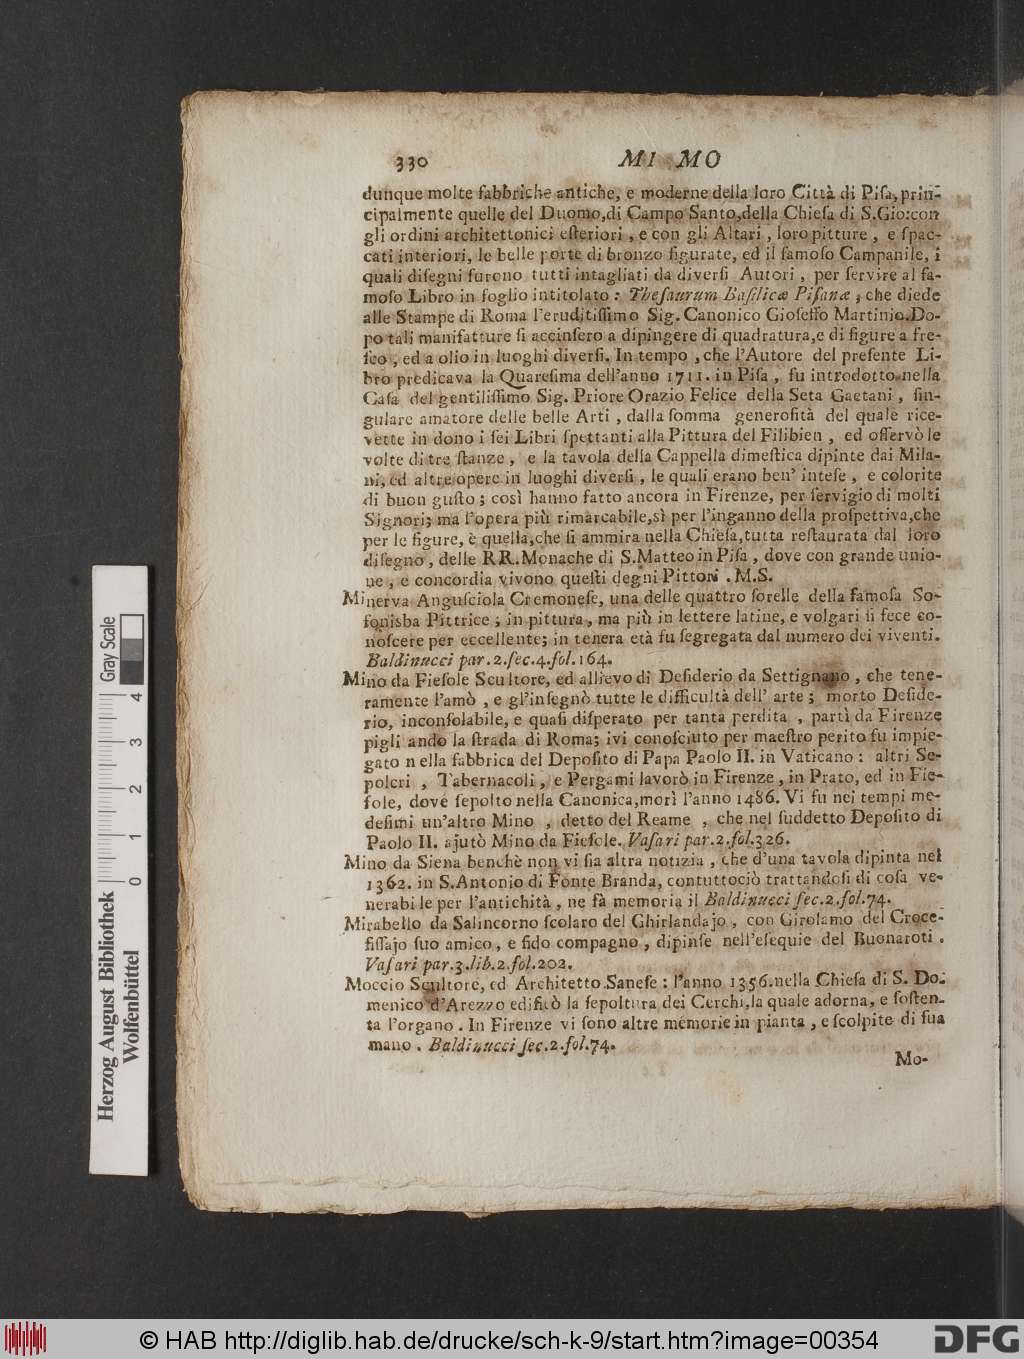 330 MI MO
dunque molte fabbriche antiche, e moderne della loro Città di Piſa, prin-
cipalmente quelle del Duomo,di Campo Santo,della Chieſa di S.Gio:con
gli ordini architettonici eſteriori , e con gli Altari , loro pitture , e ſpac-
cati interiori, le belle porte di bronzo figurate, ed il famoſo Campanile, i
quali diſegni furono tutti intagliati da diverſi Autori , per ſervire al fa-
moſo Libro in foglio intitolato : Theſaurum Baſilicæ Piſanæ ; che diede
alle Stampe di Roma l'eruditiſſimo Sig. Canonico Gioſeffo Martinio.Do-
po tali manifatture ſi accinſero a dipingere di quadratura,e di figure a fre-
ſco , ed a olio in luoghi diverſi. In tempo , che l'Autore del preſente Li-
bro predicava la Quareſima dell'anno 1711. in Piſa , fu introdotto nella
Caſa del gentiliſſimo Sig. Priore Orazio Felice della Seta Gaetani , ſin-
gulare amatore delle belle Arti , dalla ſomma generoſità del quale rice-
vette in dono i ſei Libri ſpettanti alla Pittura del Filibien , ed oſſervò le
volte di tre ſtanze , e la tavola della Cappella dimeſtica dipinte dai Mila-
ni, ed altre opere in luoghi diverſi , le quali erano ben' inteſe , e colorite
di buon guſto ; così hanno fatto ancora in Firenze, per ſervigio di molti
Signori; ma l'opera più rimarcabile,sì per l'inganno della proſpettiva,che
per le figure, è quella,che ſi ammira nella Chieſa,tutta reſtaurata dal loro
diſegno , delle RR.Monache di S.Matteo in Piſa , dove con grande unio-
ne , e concordia vivono queſti degni Pittori . M.S.
Minerva Anguſciola Cremoneſe, una delle quattro ſorelle della famoſa So-
fonisba Pittrice ; in pittura , ma più in lettere latine, e volgari ſi fece co-
noſcere per eccellente; in tenera età fu ſegregata dal numero dei viventi.
Baldinucci par.2.ſec.4.fol.164.
Mino da Fieſole Scultore, ed allievo di Deſiderio da Settignano , che tene-
ramente l'amò , e gl'inſegnò tutte le difficultà dell' arte ; morto Deſide-
rio, inconſolabile, e quaſi diſperato per tanta perdita , partì da Firenze
pigli ando la ſtrada di Roma; ivi conoſciuto per maeſtro perito fu impie-
gato n ella fabbrica del Depoſito di Papa Paolo II. in Vaticano : altri Se-
polcri , Tabernacoli , e Pergami lavorò in Firenze , in Prato, ed in Fie-
ſole, dove ſepolto nella Canonica,morì l'anno 1486. Vi fu nei tempi me-
deſimi un'altro Mino , detto del Reame , che nel ſuddetto Depoſito di
Paolo II. ajutò Mino da Fieſole. Vaſari par.2.fol.326.
Mino da Siena benchè non vi ſia altra notizia , che d'una tavola dipinta nel
1362. in S.Antonio di Fonte Branda, contuttociò trattandoſi di coſa ve-
nerabi le per l'antichità , ne fà memoria il Baldinucci ſec.2.fol.74.
Mirabello da Salincorno ſcolaro del Ghirlandajo , con Girolamo del Croce-
fiſſajo ſuo amico , e fido compagno , dipinſe nell'eſequie del Buonaroti .
Vaſari par.3.lib.2.fol.202.
Moccio Scultore, ed Architetto Saneſe : l'anno 1356.nella Chieſa di S. Do-
menico d'Arezzo edificò la ſepoltura dei Cerchi,la quale adorna, e ſoſten-
ta l'organo . In Firenze vi ſono altre memorie in pianta , e ſcolpite di ſua
mano . Baldinucci ſec.2.fol.74.
Mo-
Herzog August Bibliothek
Wolfenbüttel
0 1 2 3 4
Gray Scale
© HAB http://diglib.hab.de/drucke/sch-k-9/start.htm?image=00354
DFG